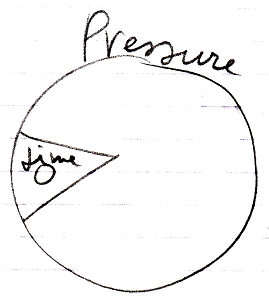 Pressure
Time